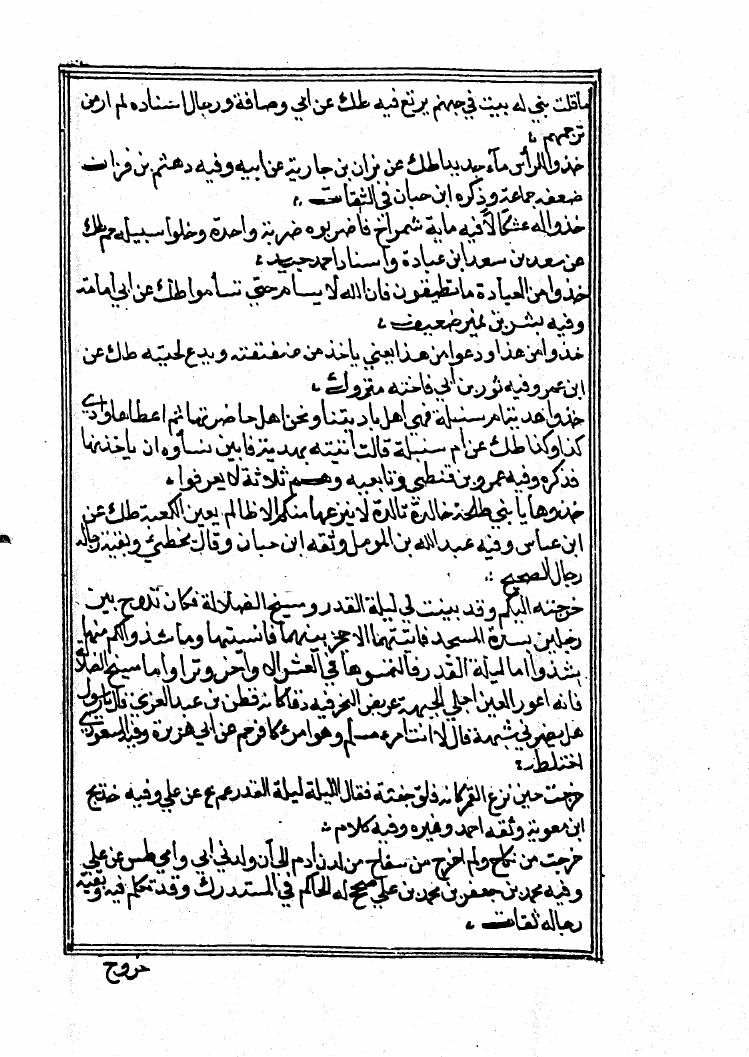 ما قلت بني له بيت في جهنم يرتع فيه طك عن ابي وصافة ورجال اسناده لم ار من
ترجمهم
خذوا للرأس مآء جديدا طك عن نمران بن جارية عن ابيه وفيه دهثم بن قران
ضعفه جماعة وذكره ابن حبان في الثقات
خذوا له عثكالا فيه ماية شمراخ فاضربوه ضربة واحدة وخلوا سبيله حم طك
عن سعيد بن سعد ابن عبادة واسناد احمد جيد
خذوا من العبادة ما تطيقون فان الله لا يسأم حتي تسأموا طك عن ابي امامة
وفيه بشر بن نمير ضعيف
خذوا من هذا ودعوا من هذا يعني ياخذ من عنفقته ويدع لحيته طك عن
ابن عمر وفيه ثور بن ابي فاخته متروك
خذوا هدية ام سنبلة فهي اهل باديتنا ونحن اهل حاضرتها ثم اعطاها وادي
كذا وكذا طك عن ام سنبلة قالت أتيته بهدية فابين نسأوه ان ياخذنها
فذكره وفيه عمرو بن قيظي وتابعيه وهم ثلاثة لا يعرفوا
خذوها يا بني طلحة خالدة تالدة لا ينزعها منكم الا ظالم يعين الكعبة طك عن
ابن عباس وفيه عبد الله بن المومل وثقه ابن حبان وقال يخطئ وبقية رجاله
رجال الصحيح
خرجت اليكم وقد بينت لي ليلة القدر ومسيخ الضلالة فكان تلاح بين
رجلين بسدة المسجد فاتيتهما لاحجز بينهما فانسيتها وسأشدو لكم منها
بشدو اما ليلة القدر فالتمسوها في العشر الاواخر وترا واما مسيخ الضلالة
فانه اعور العين اجلي الجبهة عريض النحر فيه دفا كانه قطن بن عبد العزي قال يا رسول
هل يضرني شبهه قال لا انت امرء مسلم وهو امرء كافر حم عن ابي هريرة وفيه المسعودي
اختلط
خرجت حين بزغ القمر كانه فلق جفنة فقال الليلة ليلة القدر عم ع عن علي وفيه خديج
ابن معوية وثقه احمد وغيره وفيه كلام
خرجت من نكاح ولم اخرج من سفاح من لدن ادم الي أن ولدني ابي وامي طس عن علي
وفيه محمد بن جعفر بن محمد بن علي صحح له الحاكم في المستدرك وقد تكلم فيه وبقية
رجاله ثقات
خروج